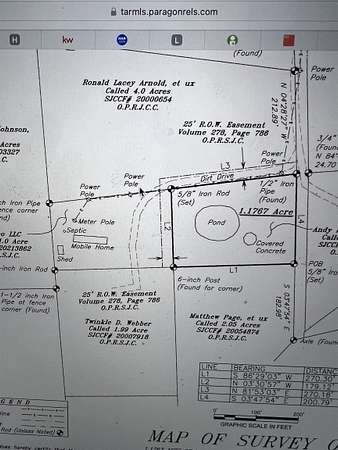 tarmls.paragonrels.com
H
kw
L
(Found)
Power
Pole
Ronald Lacey Arnold, et ux
Called 4.0 Acres
SJCCF# 20000654
O.P.R.J.C.C.
N 04°28'27" W
212.89'
Johnson,
Acres
03327
J.C.C.
25' R.O.W. Easement
Volume 278, Page 786
O.P.R.S.J.C.
Power
Pole
3/4"
(Found
N 84°
24.70
L3
Dirt Drive
Power
Pole
Power
Pole
5/8" Iron Rod
(Set)
1/2" Pipe
(Found)
1.1767 Acre
inch Iron Pipe
fence corner
(Found)
Meter Pole
Septic
Mobile Home
Shed
LLC
.0 Acre
20213862
O.P.R.S.J.C.
Pond
Covered
Concrete
L2
L4
L1
Andy
inch Iron Rod
POB
5/8" I
(Set)
6-inch Post
(Found for corner)
1-1/2 inch Iron
Pipe at fence
corner
(Found)
25' R.O.W. Easement
Volume 278, Page 786
O.P.R.S.J.C.
Twinkle D. Webber
Called 1.99 Acres
SJCCF# 20007918
O.P.R.S.J.C.
Matthew Page, et ux
Called 2.05 Acres
SJCCF# 20054874
O.P.R.S.J.C.
S 03°47'54" E
Axle (Found
LINE BEARING DISTANC
L1 S 86°29'03" W 270.30'
L2 N 03°30'57" W 179.37'
L3 N 81°53'03" E 270.18'
L4 S 03°47'54" E 200.79'
GEND
line
Rod (Unless Noted)
0 100' 200'
GRAPHIC SCALE IN FEET
MAP OF SURVEY O